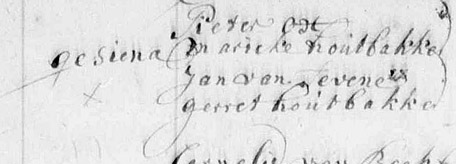 Pieter Ott
gesiena Marieke houtbakke
Jan van Zevene
gerret houtbakke
Cornelis van